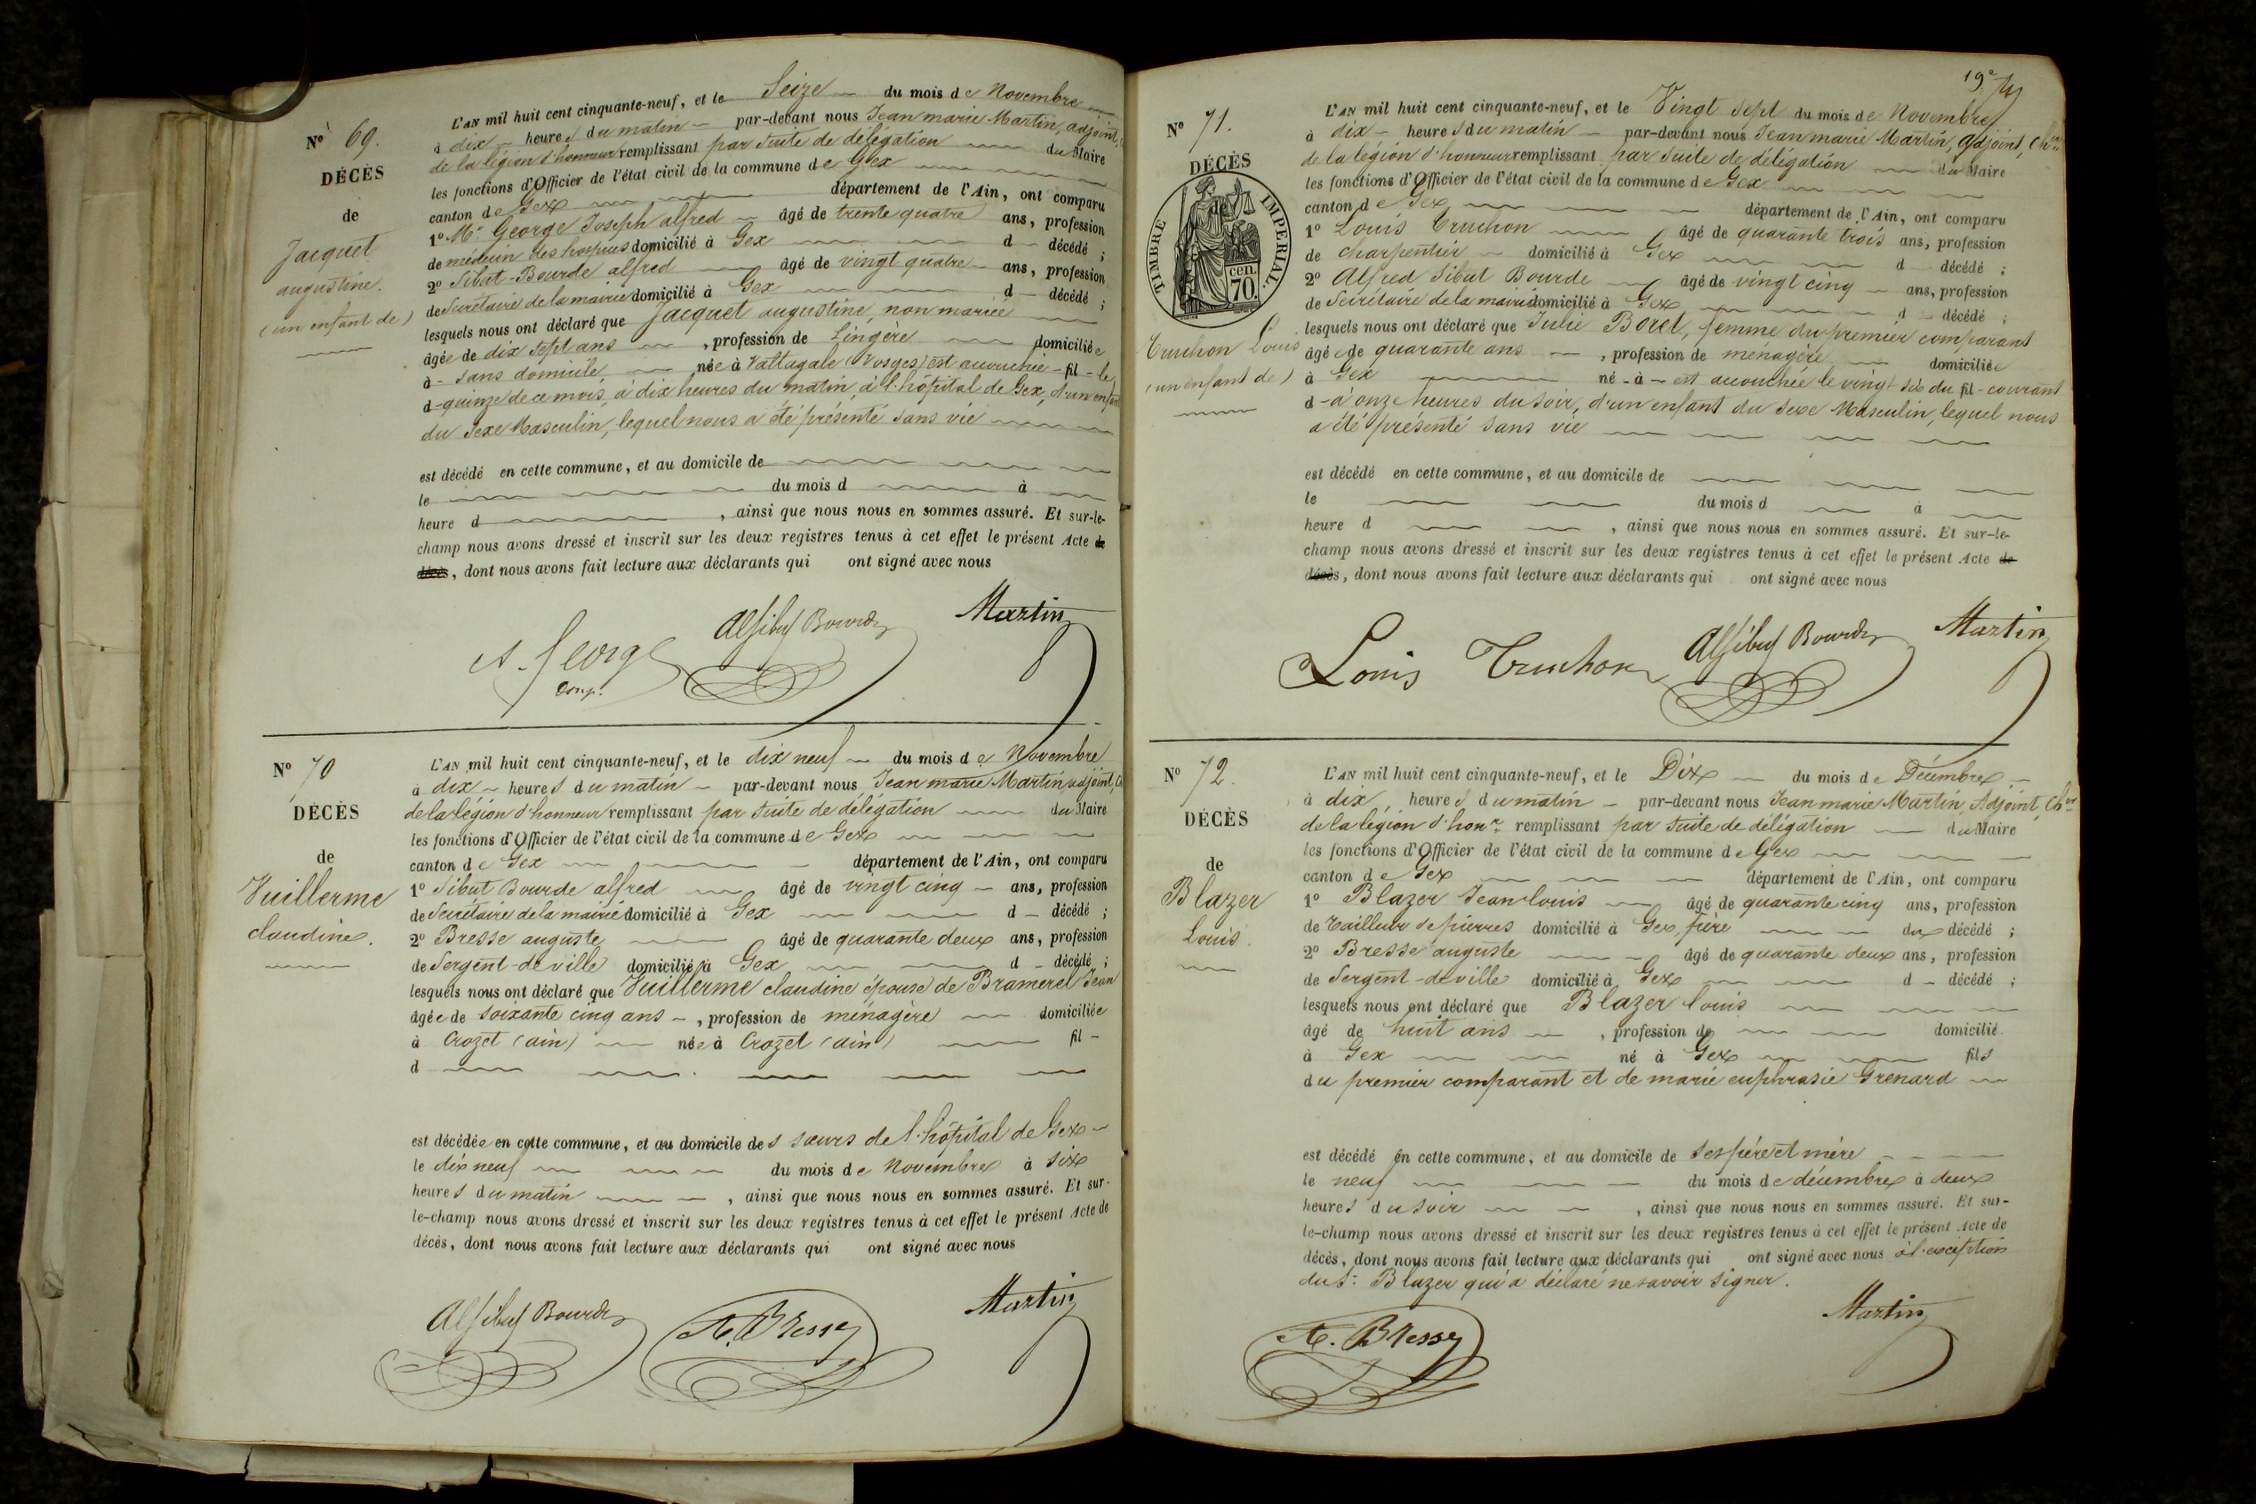 L'AN mil huit cent cinquante-neuf, et le Seize du mois de Novembre
N° 69.
à dix heures du matin par-devant nous Jean marie Martin, adjoint,
de la légion d'honneur remplissant par suite de délégation du Maire
DÉCÈS
les fonctions d'Officier de l'état civil de la commune de Gex
de
canton de Gex département de l'Ain, ont comparu
1° Mr. George Joseph alfred âgé de trente quatre ans, profession
Jacquet
de médecin des hospices domicilié à Gex d décédé ;
augustine.
2° Sibut-Bourde alfred âgé de vingt quatre ans, profession
(un enfant de)
de Secrétaire de la mairie domicilié à Gex d décédé ;
lesquels nous ont déclaré que Jacquet augustine, non mariée
âgée de dix sept ans , profession de Lingère domiciliée
à - sans domicile née à (Vosges) est accouchée - fil - le
d - quinze de ce mois, à dix heures du matin, à l'hôpital de Gex, d'un enfant
du sexe Masculin, lequel nous a été présenté sans vie
est décédé en cette commune, et au domicile de
le du mois d à
heure d , ainsi que nous nous en sommes assuré. Et sur-le-
champ nous avons dressé et inscrit sur les deux registres tenus à cet effet le présent Acte de
décès, dont nous avons fait lecture aux déclarants qui ont signé avec nous
A. George Alf Sibut Bourde Martin
N° 70
L'AN mil huit cent cinquante-neuf, et le dix neuf du mois de Novembre
à dix heures du matin par-devant nous Jean marie Martin adjoint,
DÉCÈS
de la légion d'honneur remplissant par suite de délégation du Maire
les fonctions d'Officier de l'état civil de la commune de Gex
de
canton de Gex département de l'Ain, ont comparu
Vuillerme
1° Sibut Bourde alfred âgé de vingt cinq ans, profession
de Secrétaire de la mairie domicilié à Gex d décédé ;
claudine.
2° Bresse auguste âgé de quarante deux ans, profession
de Sergent-de ville domicilié à Gex d décédé ;
lesquels nous ont déclaré que Vuillerme claudine épouse de Bramerel Jean
âgée de soixante cinq ans , profession de ménagère domiciliée
à Crozet (ain) née à Crozet (ain) fil -
d
est décédée en cette commune, et au domicile des sœurs de l'hôpital de Gex
le dix neuf du mois de Novembre à six
heures du matin , ainsi que nous nous en sommes assuré. Et sur-
le-champ nous avons dressé et inscrit sur les deux registres tenus à cet effet le présent Acte de
décès, dont nous avons fait lecture aux déclarants qui ont signé avec nous
Alf Sibut Bourde A. Bresse Martin
19e
N° 71.
L'AN mil huit cent cinquante-neuf, et le Vingt sept du mois de Novembre
à dix heures du matin par-devant nous Jean marie Martin, adjoint, Cher
DÉCÈS
de la légion d'honneur remplissant par suite de délégation du Maire
de
les fonctions d'Officier de l'état civil de la commune de Gex
TIMBRE IMPERIAL.
cen. 70.
canton de Gex département de l'Ain, ont comparu
1° Louis Truchon âgé de quarante trois ans, profession
de charpentier domicilié à Gex d décédé ;
2° Alfred Sibut Bourde âgé de vingt cinq ans, profession
de Secrétaire de la mairie domicilié à Gex d décédé ;
Truchon Louis
(un enfant de)
lesquels nous ont déclaré que Julie Borel, femme du premier comparant
âgée de quarante ans , profession de ménagère domiciliée
à Gex né - à - est accouchée le vingt six du fil - courant
d - à onze heures du soir, d'un enfant du sexe Masculin, lequel nous
a été présenté sans vie
est décédé en cette commune, et au domicile de
le du mois d à
heure d , ainsi que nous nous en sommes assuré. Et sur-le-
champ nous avons dressé et inscrit sur les deux registres tenus à cet effet le présent Acte de
décès, dont nous avons fait lecture aux déclarants qui ont signé avec nous
Louis Truchon Alf Sibut Bourde Martin
N° 72.
L'AN mil huit cent cinquante-neuf, et le Dix du mois de Décembre
à dix, heures du matin par-devant nous Jean marie Martin, Adjoint, Cher
DÉCÈS
de la légion d'honr remplissant par suite de délégation du Maire
les fonctions d'Officier de l'état civil de la commune de Gex
de
canton de Gex département de l'Ain, ont comparu
Blazer
1° Blazer Jean louis âgé de quarante cinq ans, profession
de tailleur de pierres domicilié à Gex, père du décédé ;
Louis.
2° Bresse auguste âgé de quarante deux ans, profession
de Sergent-de ville domicilié à Gex d décédé ;
lesquels nous ont déclaré que Blazer louis
âgé de huit ans , profession de domicilié
à Gex né à Gex fils
du premier comparant et de marie euphrasie Grenard
est décédé en cette commune, et au domicile de ses père et mère
le neuf du mois de décembre à deux
heures du soir , ainsi que nous nous en sommes assuré. Et sur-
le-champ nous avons dressé et inscrit sur les deux registres tenus à cet effet le présent Acte de
décès, dont nous avons fait lecture aux déclarants qui ont signé avec nous à l'exception
du Sr Blazer qui a déclaré ne savoir signer.
A. Bresse Martin